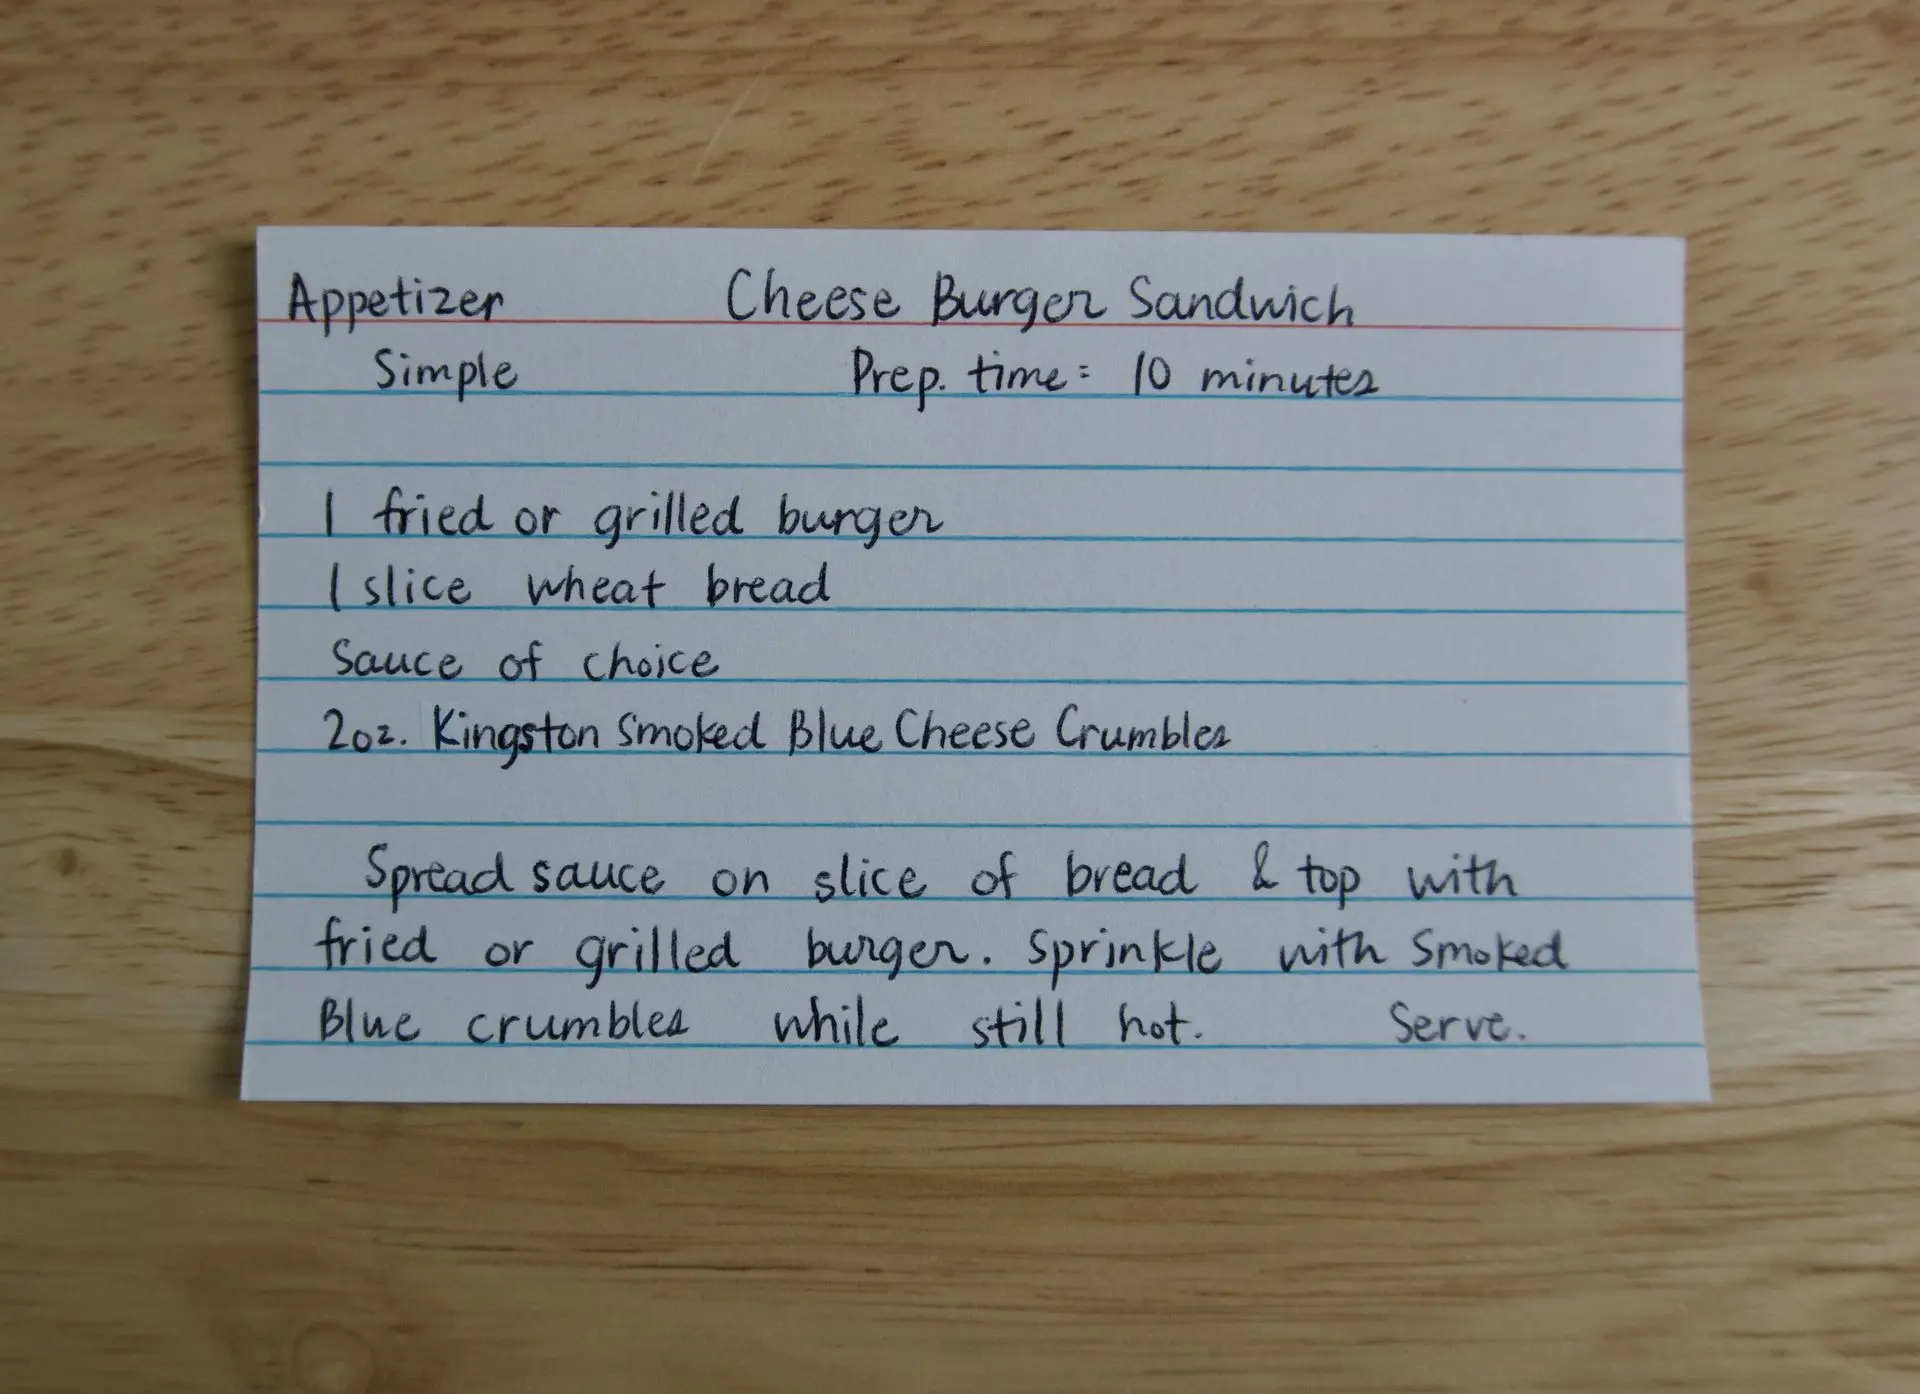 Appetizer Cheese Burger Sandwich
Simple Prep. time: 10 minutes
1 fried or grilled burger
1 slice wheat bread
Sauce of choice
2oz. Kingston Smoked Blue Cheese Crumbles
Spread sauce on slice of bread & top with
fried or grilled burger. Sprinkle with Smoked
Blue crumbles while still hot. Serve.